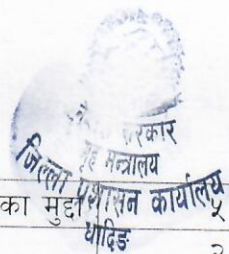 सरकार
गृह मन्त्रालय
जिल्ला प्रशासन कार्यालय
धादिङ
का मुद्दा
५